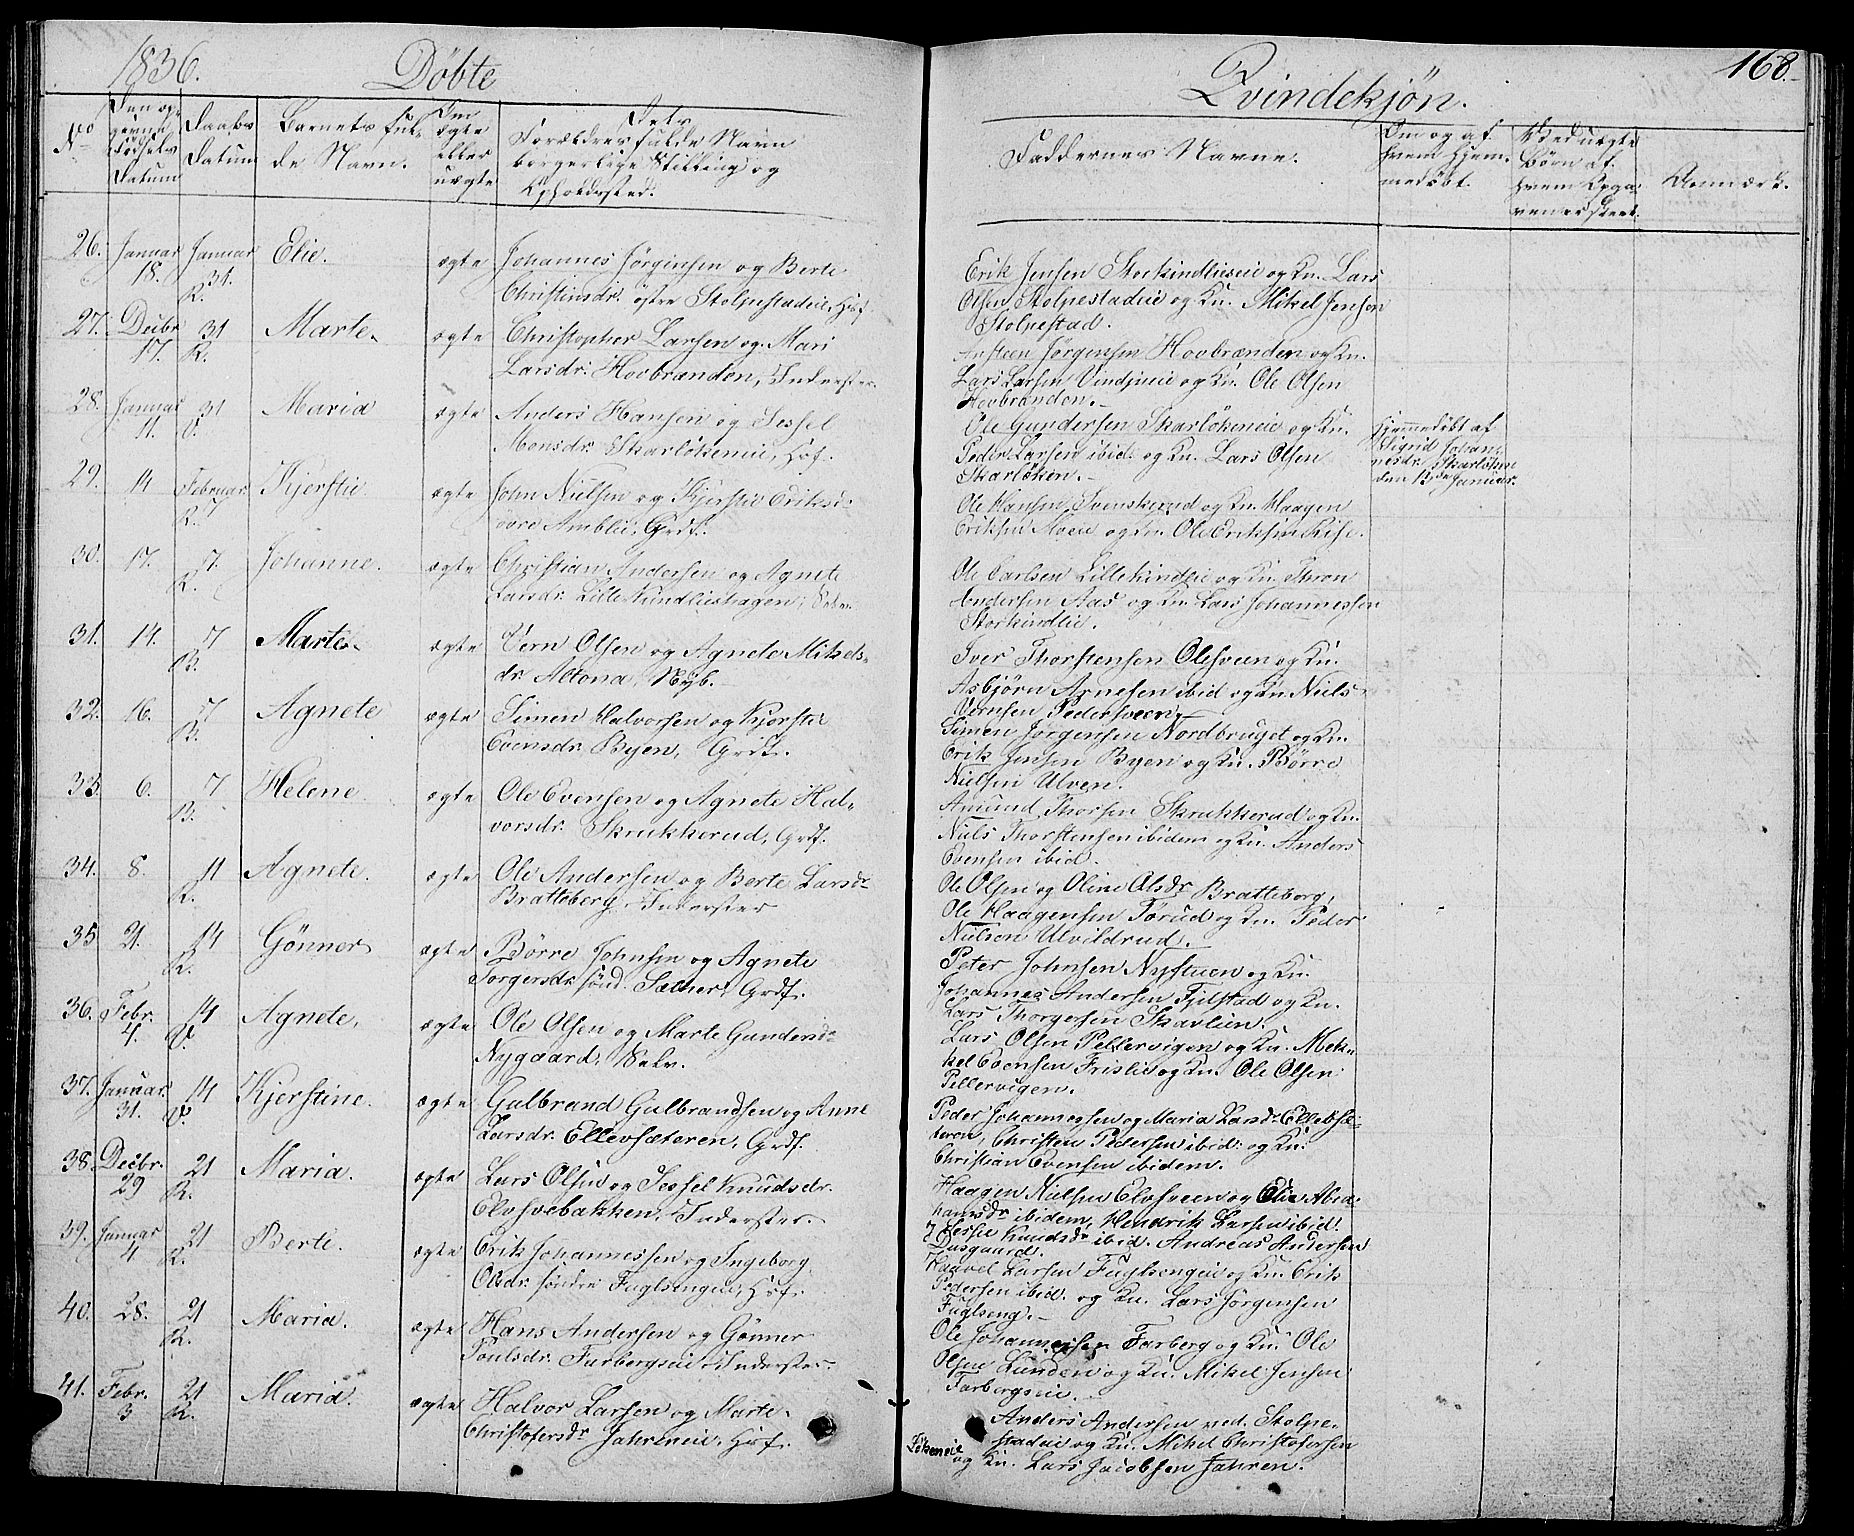 1836. Döbte
Qvindekjön. 168.
No
Den op-
givne
Födsels
Datum
Daabs
Datum
Barnets ful-
de Navn.
Om
ægte
eller
uægte
Dets
Forældres fulde Navn
borgerlige Stilling og
Opholdssted.
Faddernes Navne.
Om og af
hvem hjem-
medöbt.
Ved uægte
Börn af
hvem Opga-
ven er skeet.
Anmærk.
26. Januar 18. Januar 31. R. Elie. ægte Johannes Jörginsen og Berte
Christinsdr. östre Stolpestadeie, Husf.
Erik Jensen Storkindlieeie og Kn. Lars
Olsen Stolpestadeie og Kn. Mikel Jenson
Stolpestad.
27. Decbr 17. 31 R. Marte. ægte Christopher Larsen og Mari
Larsdr. Hovbrænden, Inderster.
Austeen Jörgensen Hovbrænden og Kn.
Lars Larsen Vindjueie og Kn. Ole Olsen
Hovbrænden.
28. Januar 11. 31 V. Maria ægte Anders Hansen og Sessel
Monsdr. Skarlökeneie, Husf.
Ole Gundersen Skarlökeneie og Kn.
Peder Larsen ibid. og Kn. Lars Olsen
Skarlöken.
Hjemmedöbt af
Sigrid Johan-
nesdr. Skarlöken
den 12te Januar.
29. 14 Februar 7 R. Kjerstie ægte John Nielsen og Kjerstie Eriksd.
övre Amblie, Grdf.
Ole Hansen Svenskerud og Kn. Haagen
Eriksen Moeie og Kn. Ole Eriksen Kise.
30. 17. 7. R. Johanne. ægte Christian Andersen og Agnete
Larsdr. Lillekindliehagen, Selv.
Ole Carlsen Lillekindlie og Kn. Thron
Andersen Aas og Kn. Lars Johannessen
Storkindlie.
31. 14. 7 R. Marte. ægte Vern Olsen og Agnete Mikels-
dr Altona, Nyb.
Iver Thorstensen Olesveen og Kn.
Asbjörn Arnesen ibid og Kn. Niels
Vernsen Pedersveen.
32. 16. 7 R. Agnete ægte Simen Halvorsen og Kjerstie
Evensdr. Byen, Grdf.
Simen Jörgensen Nordbruget og Kn.
Erik Jensen Byen og Kn. Börre
Nielsen Ulven.
33. 6. 7 R. Helene ægte Ole Evensen og Agnete Hal-
vorsdr. Skrukkerud, Grdf.
Amund Thorsen Skrukkerud og Kn.
Niels Thorstensen ibidem og Kn. Anders
Evensen ibid.
34. 8. 11 R. Agnete. ægte Ole Andersen og Berte Larsdr
Bratteberg, Inderster
Ole Olsen og Oline Olsdr Bratteborg,
Ole Haagensen Törud og Kn. Peder
Nielsen Ulvildrud.
35 21. 14 R. Gönner ægte Börre Johnsen og Agnete
Torgersdr. sönd. Sæther, Grdf.
Peter Johnsen Nystuen og Kn.
Johannes Andersen Fjelstad og Kn.
Lars Thorgersen Skarlien.
36. Febr. 4. 14 V. Agnete. ægte Ole Olsen og Marte Gundersdr
Nygaard, Selv.
Lars Olsen Pellervigen og Kn. Mek-
kel Evensen Frislie og Kn. Ole Olsen
Pellervigen.
37. Januar. 31. 14 V. Kjerstine. ægte Gulbrand Gulbrandsen og Anne
Larsdr. Ellevsæteren, Grdf.
Peder Johannessen og Maria Larsdr. Ellevsæ-
teren, Christen Pedersen ibid. og Kn.
Christian Evensen ibidem.
38. Decbr. 29 21 R. Maria. ægte Lars Olsen og Sessel Knudsdr.
Elvsvebakken, Inderster.
Haagen Nielsen Elvsveen og Elie Abra-
hamsdr ibidem, Hendrik Larsen ibid.
Sessie Knudsdr ibid. Andreas Andersen
39. Januar 4 21 R. Berte. ægte Erik Johannessen og Ingeborg
Olsdr. söndre Fuglsengeie, Husf.
Larsen Fuglsengeie og Kn. Erik
Pedersen ibid. og Kn. Lars Jörgensen
Fuglseng.
40. 28. 21 R. Maria. ægte Hans Andersen og Gönner
Poulsdr. Farbergseie Inderster.
Ole Johannessen Farberg og Kn. Ole
Olsen Lunden og Kn. Mikel Jensen
Farbergseie.
41. Febr. 3 21 R. Maria. ægte Halvor Larsen og Marte
Christofersdr Jahreneie, Husf.
Anders Andersen ved. Stolpe-
stadeie og Kn. Mikel Christofersen
Lökeneie
og Kn. Lars Jacobsen Jahren.